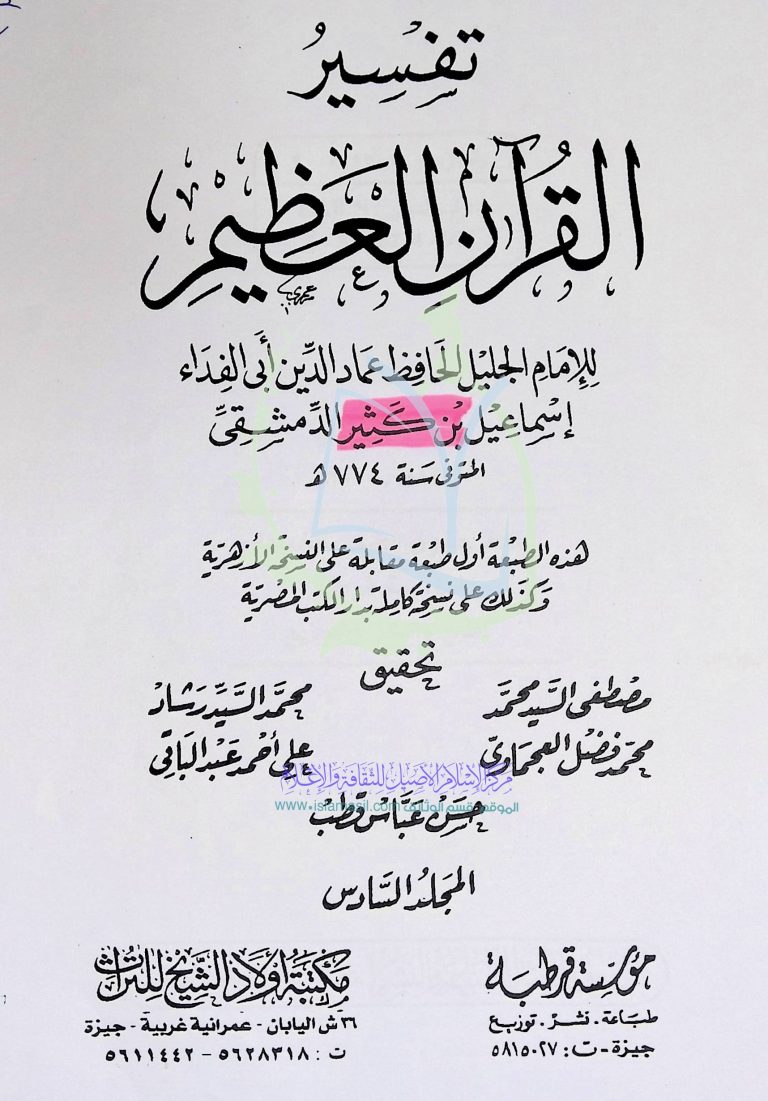 تفسير
القرآن العظيم
للإمام الجليل الحافظ عماد الدين أبي الفداء
إسماعيل بن كثير الدمشقي
المتوفى سنة ٧٧٤ هـ
هذه الطبعة أول طبعة مقابلة على النسخة الأزهرية
وكذلك على نسخة كاملة بدار الكتب المصرية
تحقيق
مصطفى السيد محمد محمد السيد رشاد
محمد فضل العجماوي علي أحمد عبد الباقي
مركز الإسلام الأصيل للثقافة والإعلام
الموقع: قسم الوثائق www.islamasil.com
حسن عباس قطب
المجلد السادس
مؤسسة قرطبة
طباعة . نشر . توزيع
جيزة - ت : ٥٨١٥٠٢٧
مكتبة أولاد الشيخ للتراث
٣٦ ش اليابان - عمرانية غربية - جيزة
ت : ٥٦٢٨٣١٨ - ٥٦١١٤٤٢